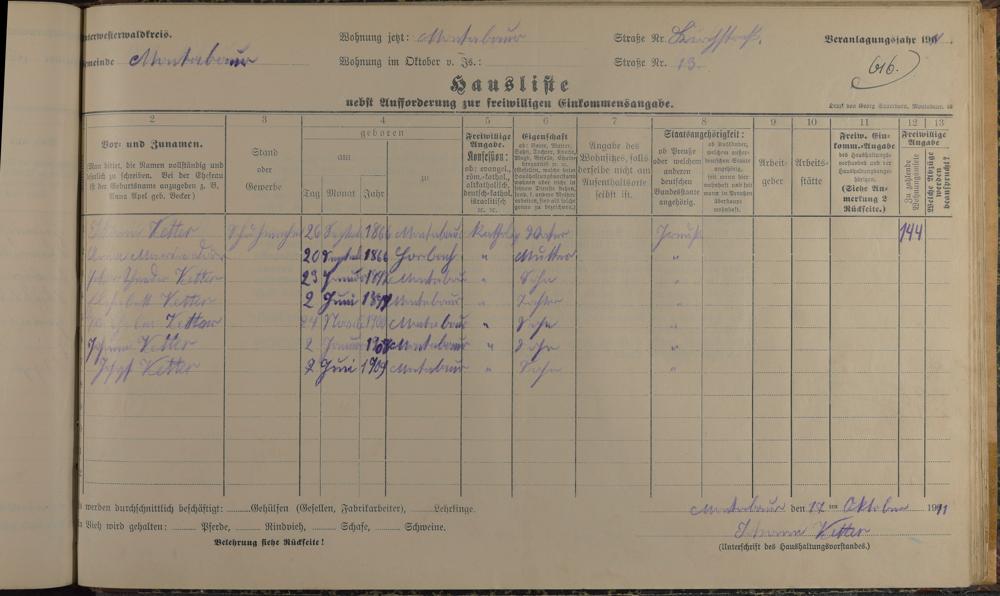 nterwesterwaldkreis.
Wohnung jetzt: Montabaur
Straße Nr. Kirchstraß.
Veranlagungsjahr 191
emeinde Montabaur
Wohnung im Oktober v. Js.:
Straße Nr. 13.
616.
Hausliste
nebst Aufforderung zur freiwilligen Einkommensangabe.
Druck von Georg Sauerborn, Montabaur.
2 3 4 5 6 7 8 9 10 11 12 13
Vor- und Zunamen.
(Man bittet, die Namen vollständig und
deutlich zu schreiben. Bei der Ehefrau
ist der Geburtsname anzugeben z. B.
Anna Apel geb. Becker.)
Stand
oder
Gewerbe
geboren
am
zu
Tag Monat Jahr
Freiwillige
Angabe.
Konfession:
ob: evangel.,
röm.-kathol.,
altkatholisch,
deutsch-kathol.
israelitisch
ꝛc. ꝛc.
Eigenschaft
ob: Vater, Mutter,
Sohn, Tochter,
Angabe des
Wohnsitzes, falls
derselbe nicht am
Aufenthaltsorte
selbst ist.
Staatsangehörigkeit:
ob Preuße
oder welchem
anderen
deutschen
Bundesstaate
angehörig.
ob Ausländer,
welchem
Arbeit-
geber
Arbeits-
stätte
Freiw. Ein-
komm.-Angabe
des Haushaltungs-
vorstandes und der
Haushaltungsange-
hörigen.
(Siehe An-
merkung 2
Rückseite.)
Freiwillige
Angabe
Zu zahlende
Wohnungsmiete
Welche Abzüge
werden
beansprucht?
Johann Vetter Schuhmacher 26 Septe 186 Montabaur Kathol. Vater Preuße 144
Anna Maria 20 Septe 186 Horbach " Mutter "
Peter Vetter 23 Januar 189 Montabaur " Sohn "
Elisabeth Vetter 2 Juni 189 Montabaur " Tochter "
Vetter 24 190 Montabaur " Sohn "
Johann Vetter 2 Januar 190 Montabaur " Sohn "
Josef Vetter 2 Juni 1909 Montabaur " Sohn "
s werden durchschnittlich beschäftigt: Gehülfen (Gesellen, Fabrikarbeiter), Lehrlinge.
Montabaur den 17 ten Oktober 1911
n Vieh wird gehalten: Pferde, Rindvieh, Schafe, Schweine.
Johann Vetter
Belehrung siehe Rückseite!
(Unterschrift des Haushaltungsvorstandes.)